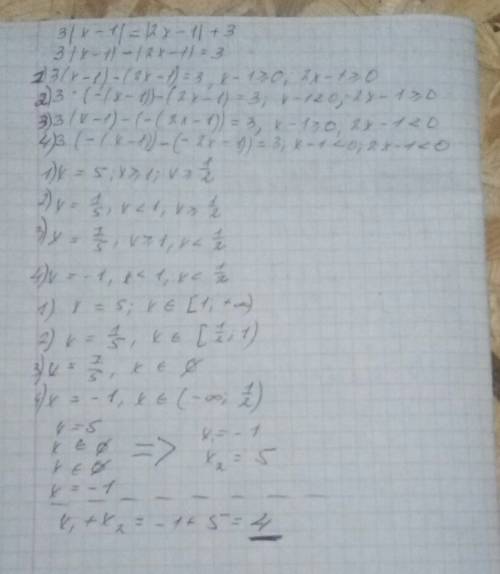 3|x-1| = |2x-1| + 3
3|x-1| - |2x-1| = 3
1) 3(x-1) - (2x-1) = 3, x-1≥0, 2x-1≥0
2) 3·(-(x-1)) - (2x-1) = 3, x-1<0, 2x-1≥0
3) 3(x-1) - (-(2x-1)) = 3, x-1≥0, 2x-1<0
4) 3·(-(x-1)) - (-2x-1)) = 3, x-1<0, 2x-1<0
1) x = 5, x≥1, x≥ 1/2
2) x = 1/5, x<1, x≥ 1/2
3) x = 7/5, x≥1, x< 1/2
4) x = -1, x<1, x< 1/2
1) x = 5; x ∈ [1, +∞)
2) x = 1/5, x ∈ [1/2; 1)
3) x = 7/5, x ∈ ∅
4) x = -1, x ∈ (-∞; 1/2)
x = 5
x ∈ ∅
x ∈ ∅
x = -1
=>
x₁ = -1
x₂ = 5
x₁ + x₂ = -1 + 5 = 4